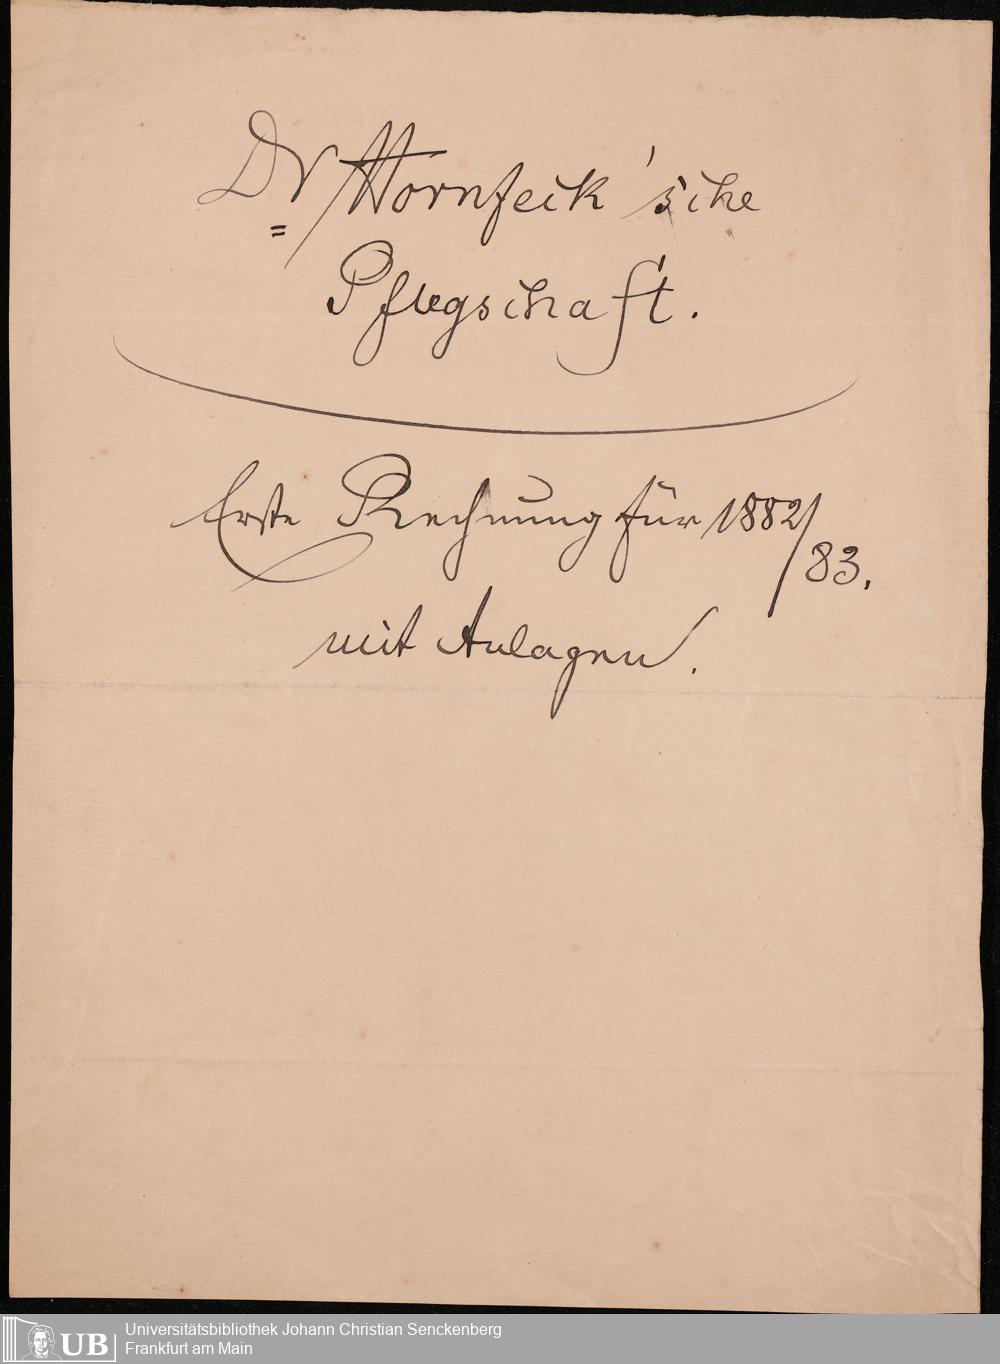 Dr Hornfeck'sche
Pflegschaft.
Erste Rechnung für 1882/
83.
mit Anlagen.
UB
Universitätsbibliothek Johann Christian Senckenberg
Frankfurt am Main